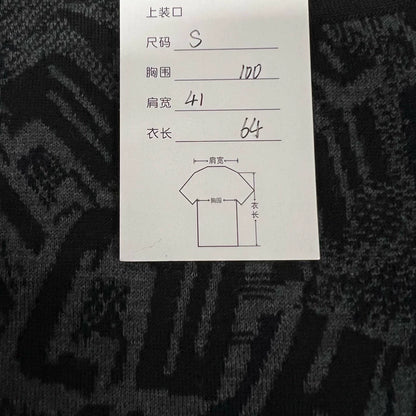 上装口
尺码 S
胸围 100
肩宽 41
衣长 64
肩宽
胸围
衣长